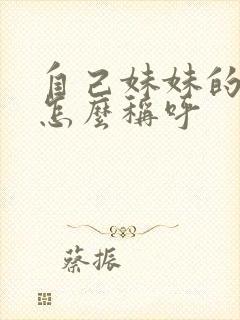 自己妹妹的
怎麼稱呼
蔡振